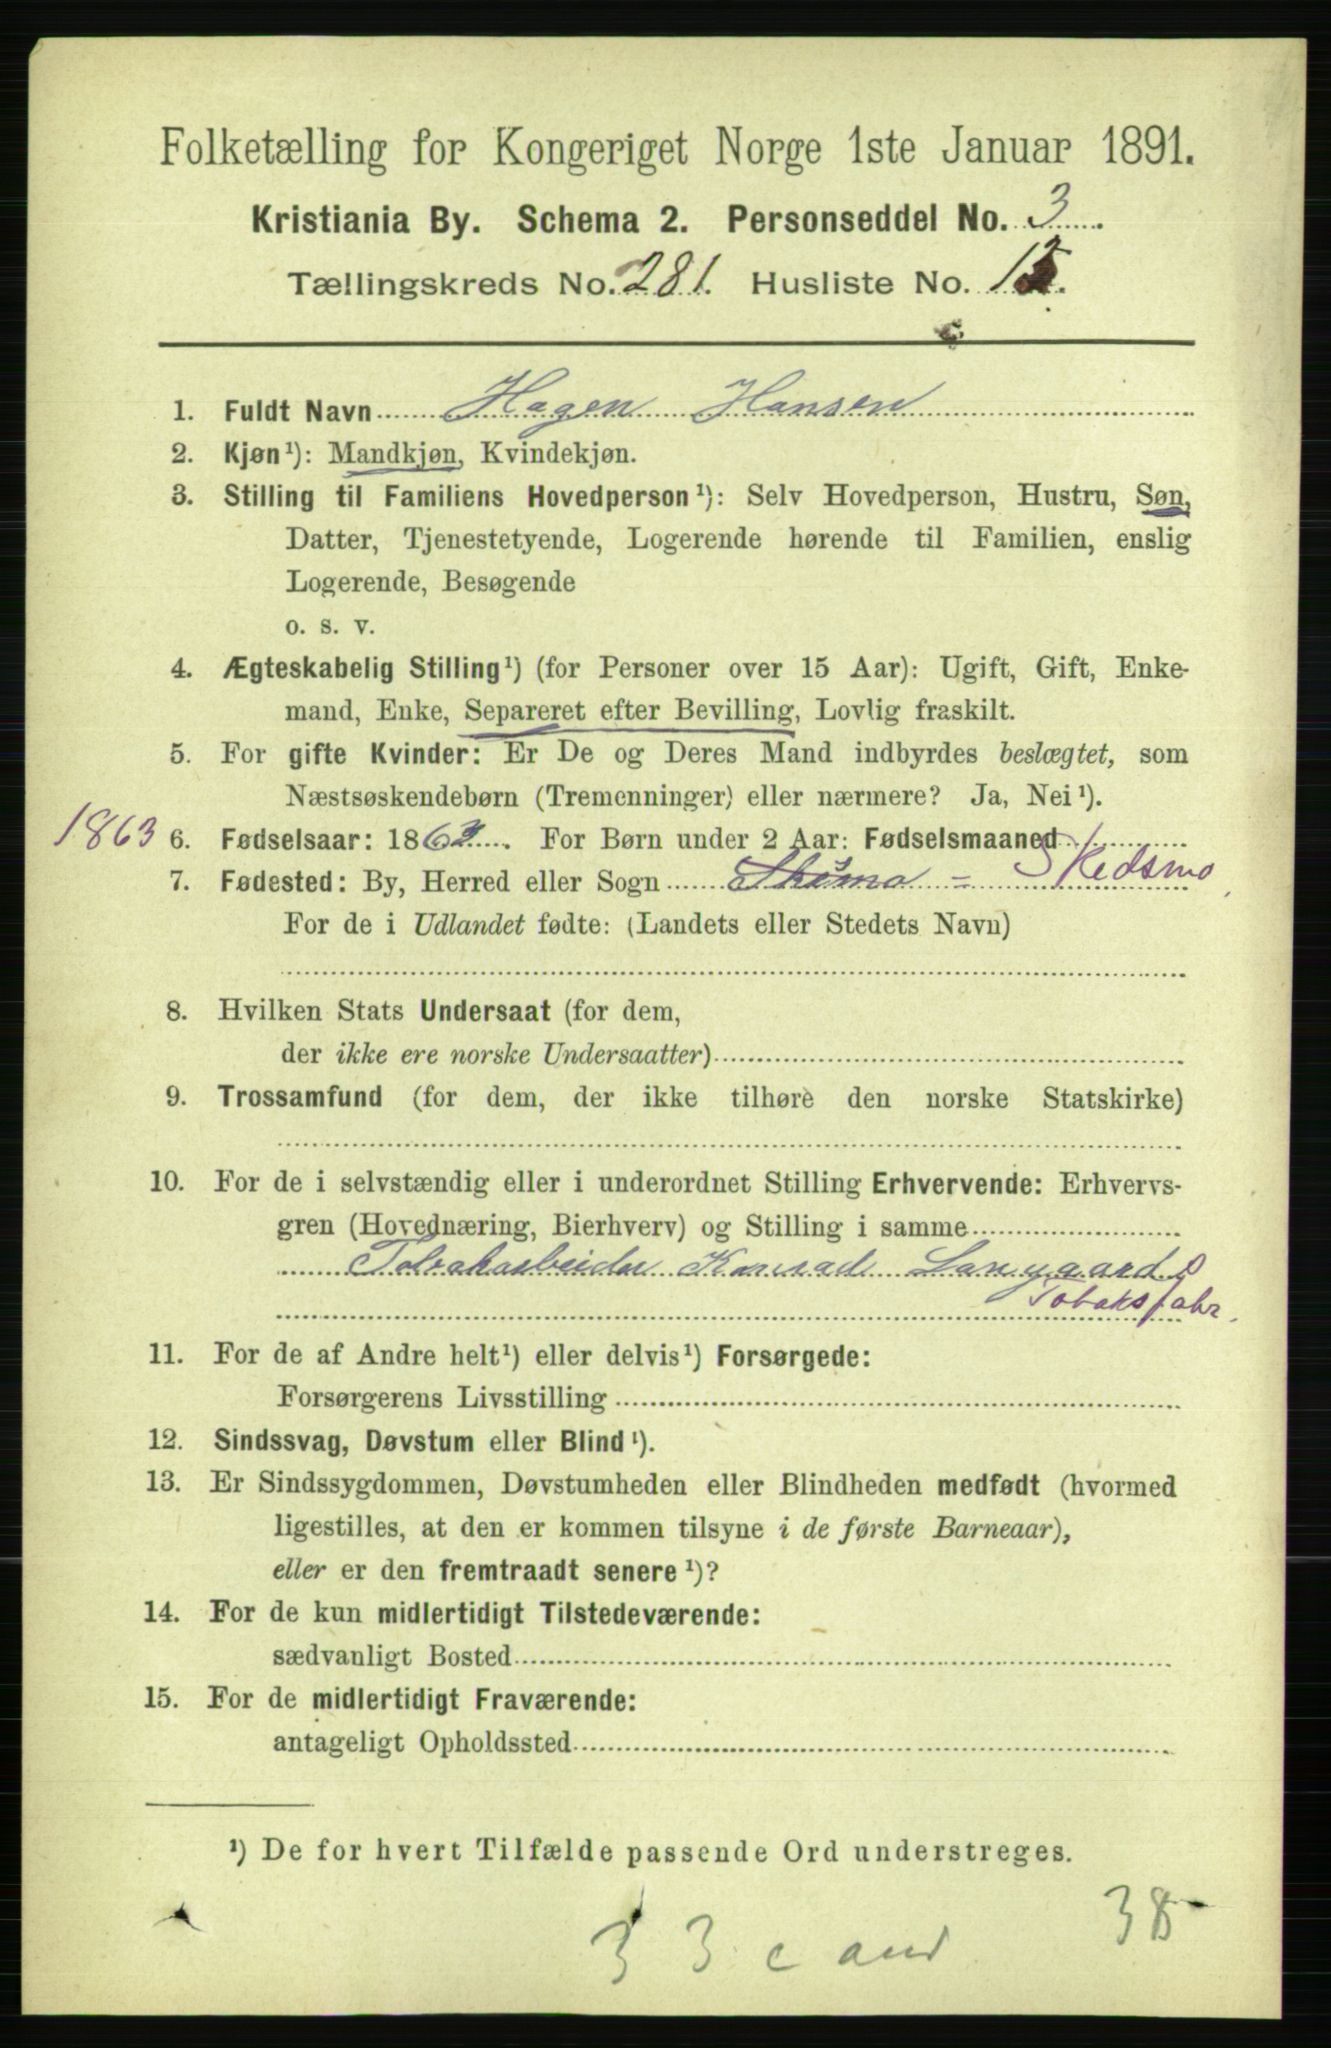 Folketælling for Kongeriget Norge 1ste Januar 1891.
Kristiania By. Schema 2. Personseddel No. 3.
Tællingskreds No. 281. Husliste No. 12.
1. Fuldt Navn Hagen Hansen
2. Kjøn¹): Mandkjøn, Kvindekjøn.
3. Stilling til Familiens Hovedperson¹): Selv Hovedperson, Hustru, Søn,
Datter, Tjenestetyende, Logerende hørende til Familien, enslig
Logerende, Besøgende
o. s. v.
4. Ægteskabelig Stilling¹) (for Personer over 15 Aar): Ugift, Gift, Enke-
mand, Enke, Separeret efter Bevilling, Lovlig fraskilt.
5. For gifte Kvinder: Er De og Deres Mand indbyrdes beslægtet, som
Næstsøskendebørn (Tremenninger) eller nærmere? Ja, Nei¹).
1863 6. Fødselsaar: 1863. For Børn under 2 Aar: Fødselsmaaned
7. Fødested: By, Herred eller Sogn - Skedsmo
For de i Udlandet fødte: (Landets eller Stedets Navn)
8. Hvilken Stats Undersaat (for dem,
der ikke ere norske Undersaatter)
9. Trossamfund (for dem, der ikke tilhøre den norske Statskirke)
10. For de i selvstændig eller i underordnet Stilling Erhvervende: Erhvervs-
gren (Hovednæring, Bierhverv) og Stilling i samme
Tobakarbeider Konrad Langaards
Tobaksfabr.
11. For de af Andre helt¹) eller delvis¹) Forsørgede:
Forsørgerens Livsstilling
12. Sindssvag, Døvstum eller Blind¹).
13. Er Sindssygdommen, Døvstumheden eller Blindheden medfødt (hvormed
ligestilles, at den er kommen tilsyne i de første Barneaar),
eller er den fremtraadt senere¹)?
14. For de kun midlertidigt Tilstedeværende:
sædvanligt Bosted
15. For de midlertidigt Fraværende:
antageligt Opholdssted
¹) De for hvert Tilfælde passende Ord understreges.
38
3 3 c and